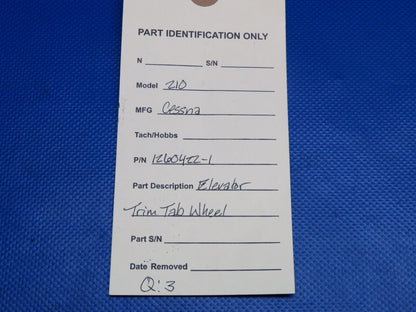 PART IDENTIFICATION ONLY
N S/N
Model 210
MFG Cessna
Tach/Hobbs
P/N 1260422-1
Part Description Elevator
Trim Tab Wheel
Part S/N
Date Removed
Q:3